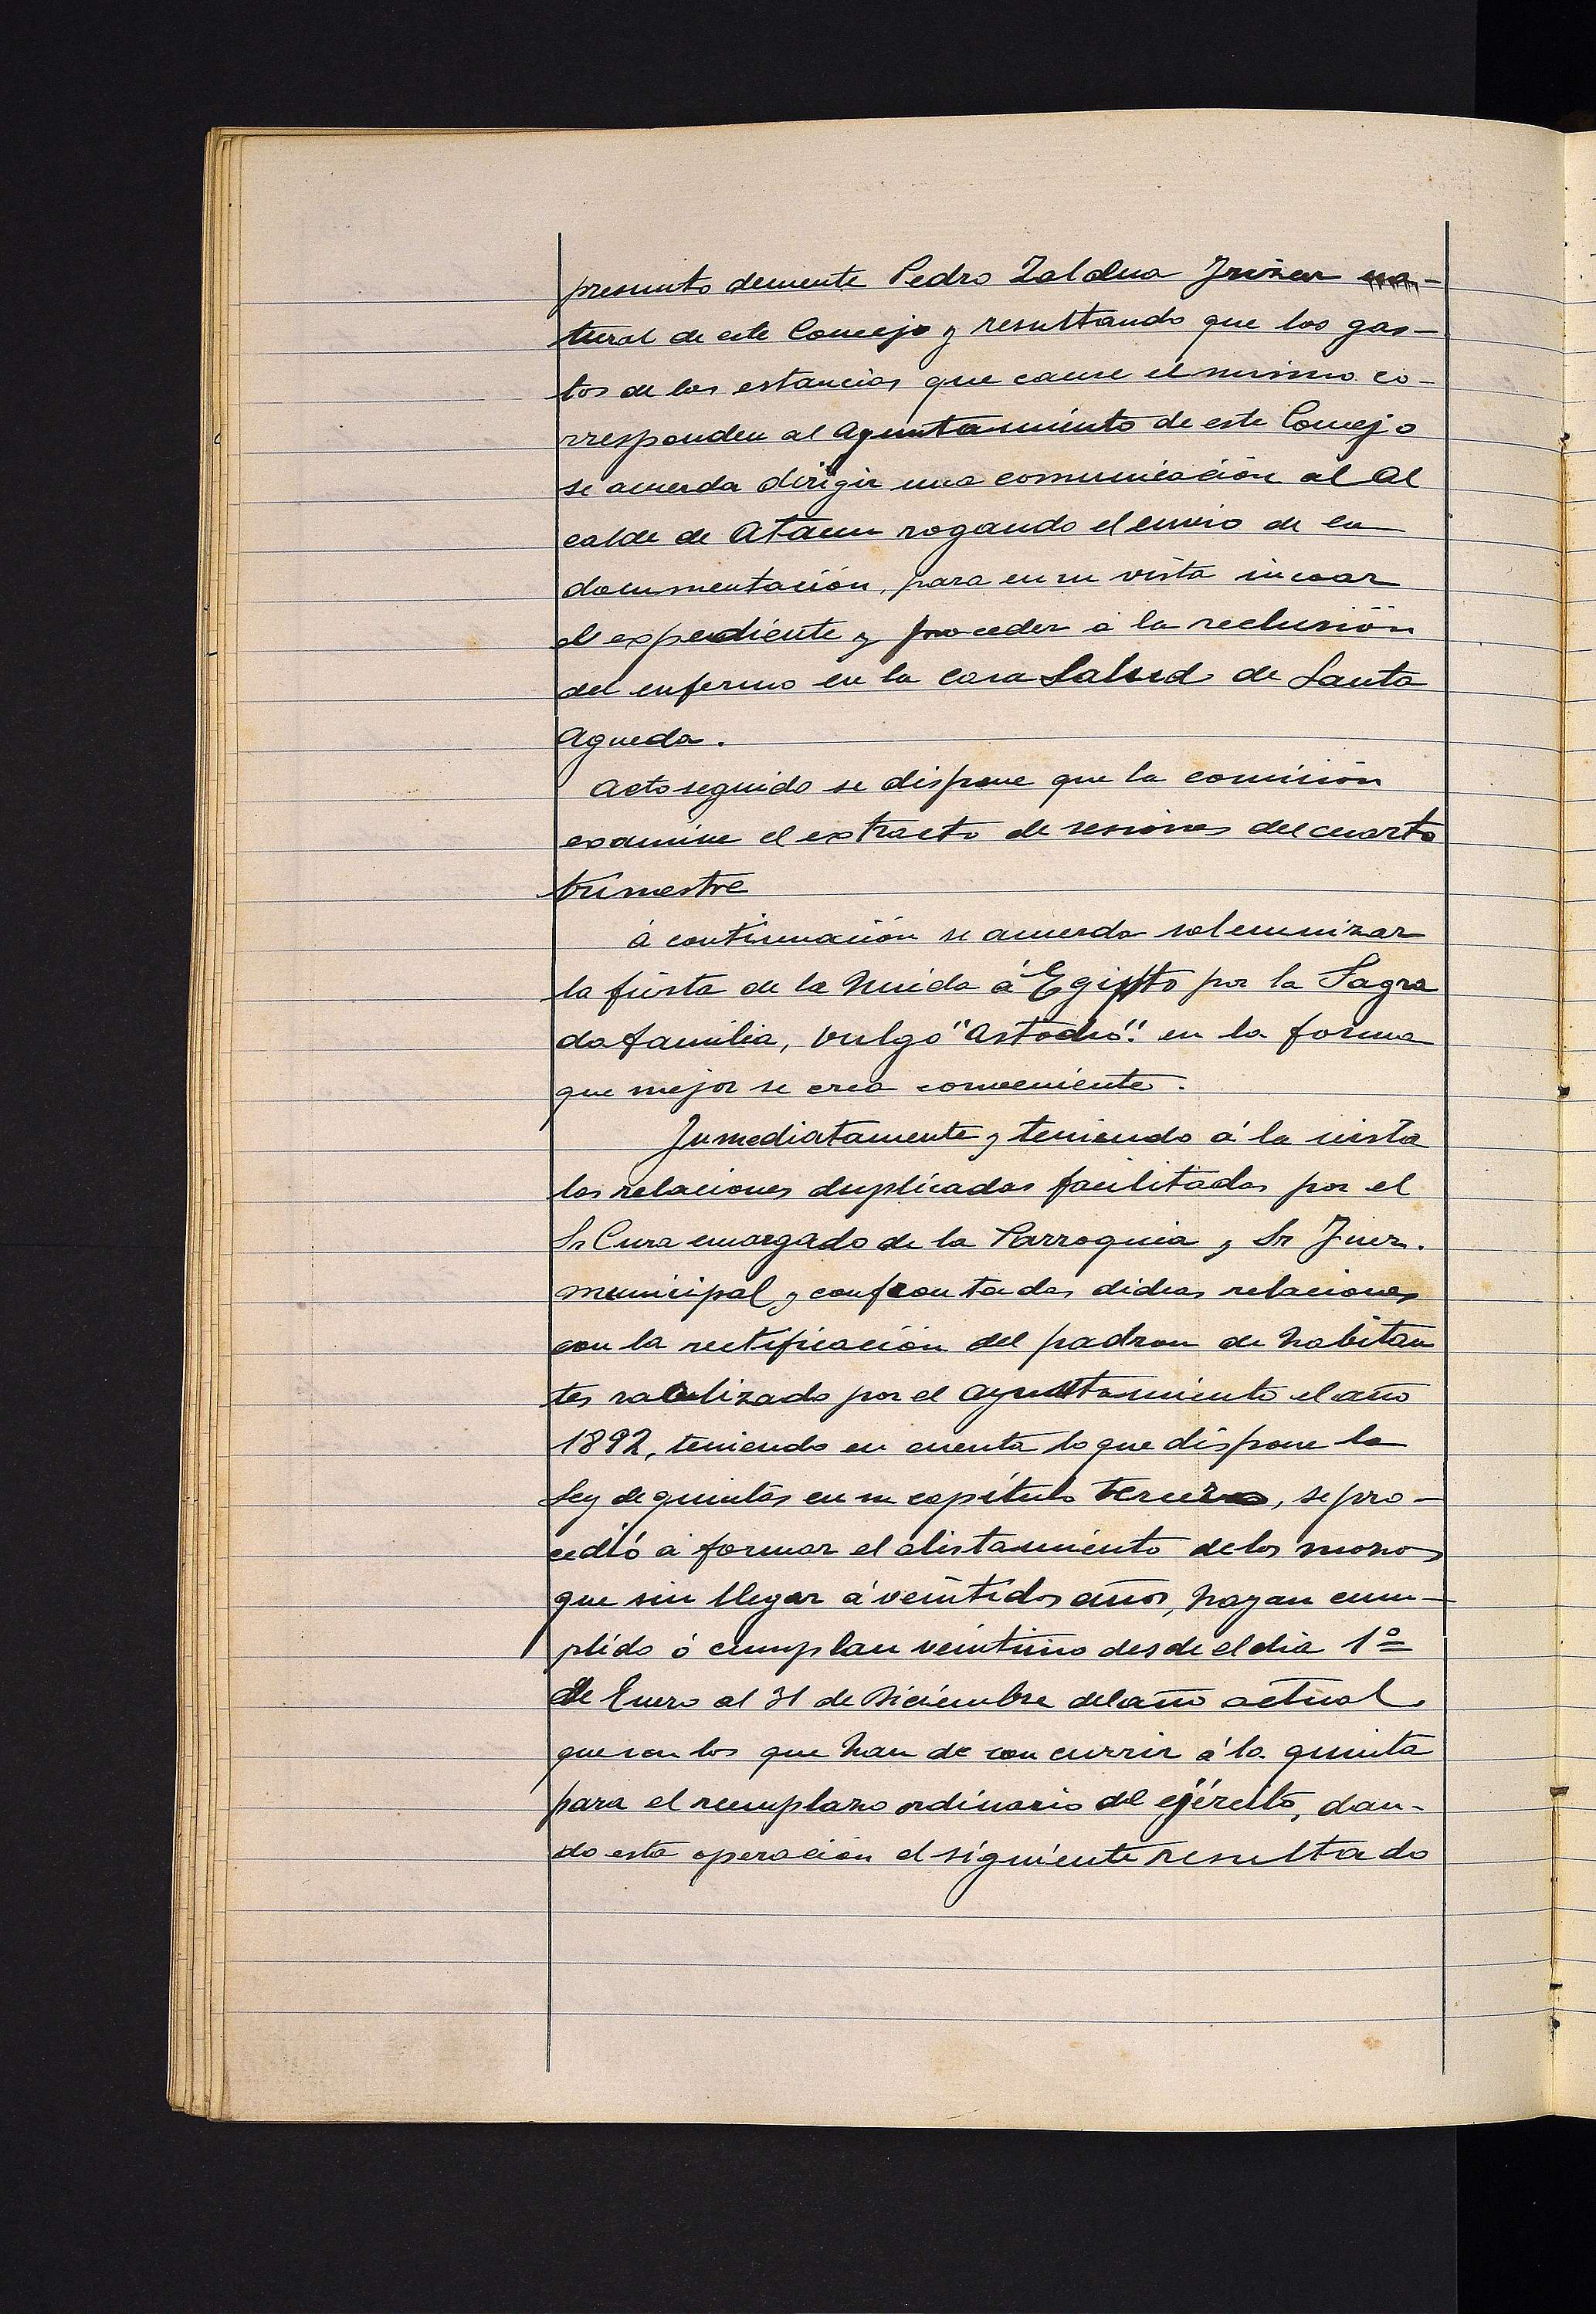 presunto demente Pedro Zaldua Irizar na-
tural de este Concejo y resultando que los gas-
tos de las estancias que cause el mismo co-
rresponden al Ayuntamiento de este Concejo
se acuerda dirigir una comunicación al Al
calde de Ataun rogando el envio de la
documentación, para en su vista incoar
el expediente y proceder a la reclusión
del enfermo en la casa Salud de Santa
Agueda.
Acto seguido se dispone que la comisión
examine el extracto de sesiones del cuarto
trimestre
á continuación se acuerda solemnizar
la fiesta de la huida á Egipto por la Sagra
da familia, vulgo "Astodio". en la forma
que mejor se crea conveniente.
Inmediatamente y teniendo á la vista
las relaciones duplicadas facilitadas por el
Sr Cura encargado de la Parroquia y Sr Juez.
municipal y confrontadas dichas relaciones
con la rectificación del padron de habitan
tes realizado por el Ayuntamiento el año
1892, teniendo en cuenta lo que dispone la
Ley de quintas en su capítulo tercero, se pro-
cedió á formar el alistamiento de los mozos
que sin llegar á veintidos años, hayan cum-
plido ó cumplan veintiuno desde el dia 1º
de Enero al 31 de Diciembre del año actual
que son los que han de concurrir á la quinta
para el reemplazo ordinario del ejército, dan-
do esta operación el siguiente resultado